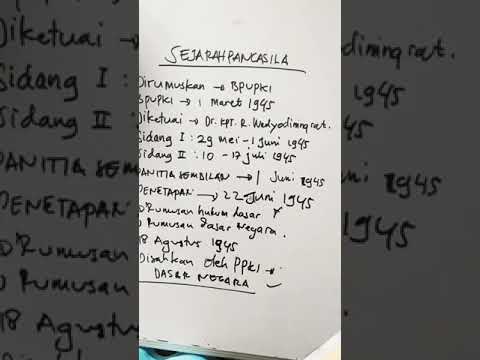 SEJARAH PANCASILA
Dirumuskan → BPUPKI
BPUPKI → 1 Maret 1945
Diketuai → Dr. KPT. R. Wedyodiningrat.
Sidang I : 29 mei - 1 Juni 1945
Sidang II : 10 - 17 juli 1945
PANITIA SEMBILAN → 1 Juni 1945
PENETAPAN → 22 Juni 1945
Rumusan hukum dasar
Rumusan dasar Negara.
18 Agustus 1945
Disahkan oleh PPKI → :
DASAR NEGARA